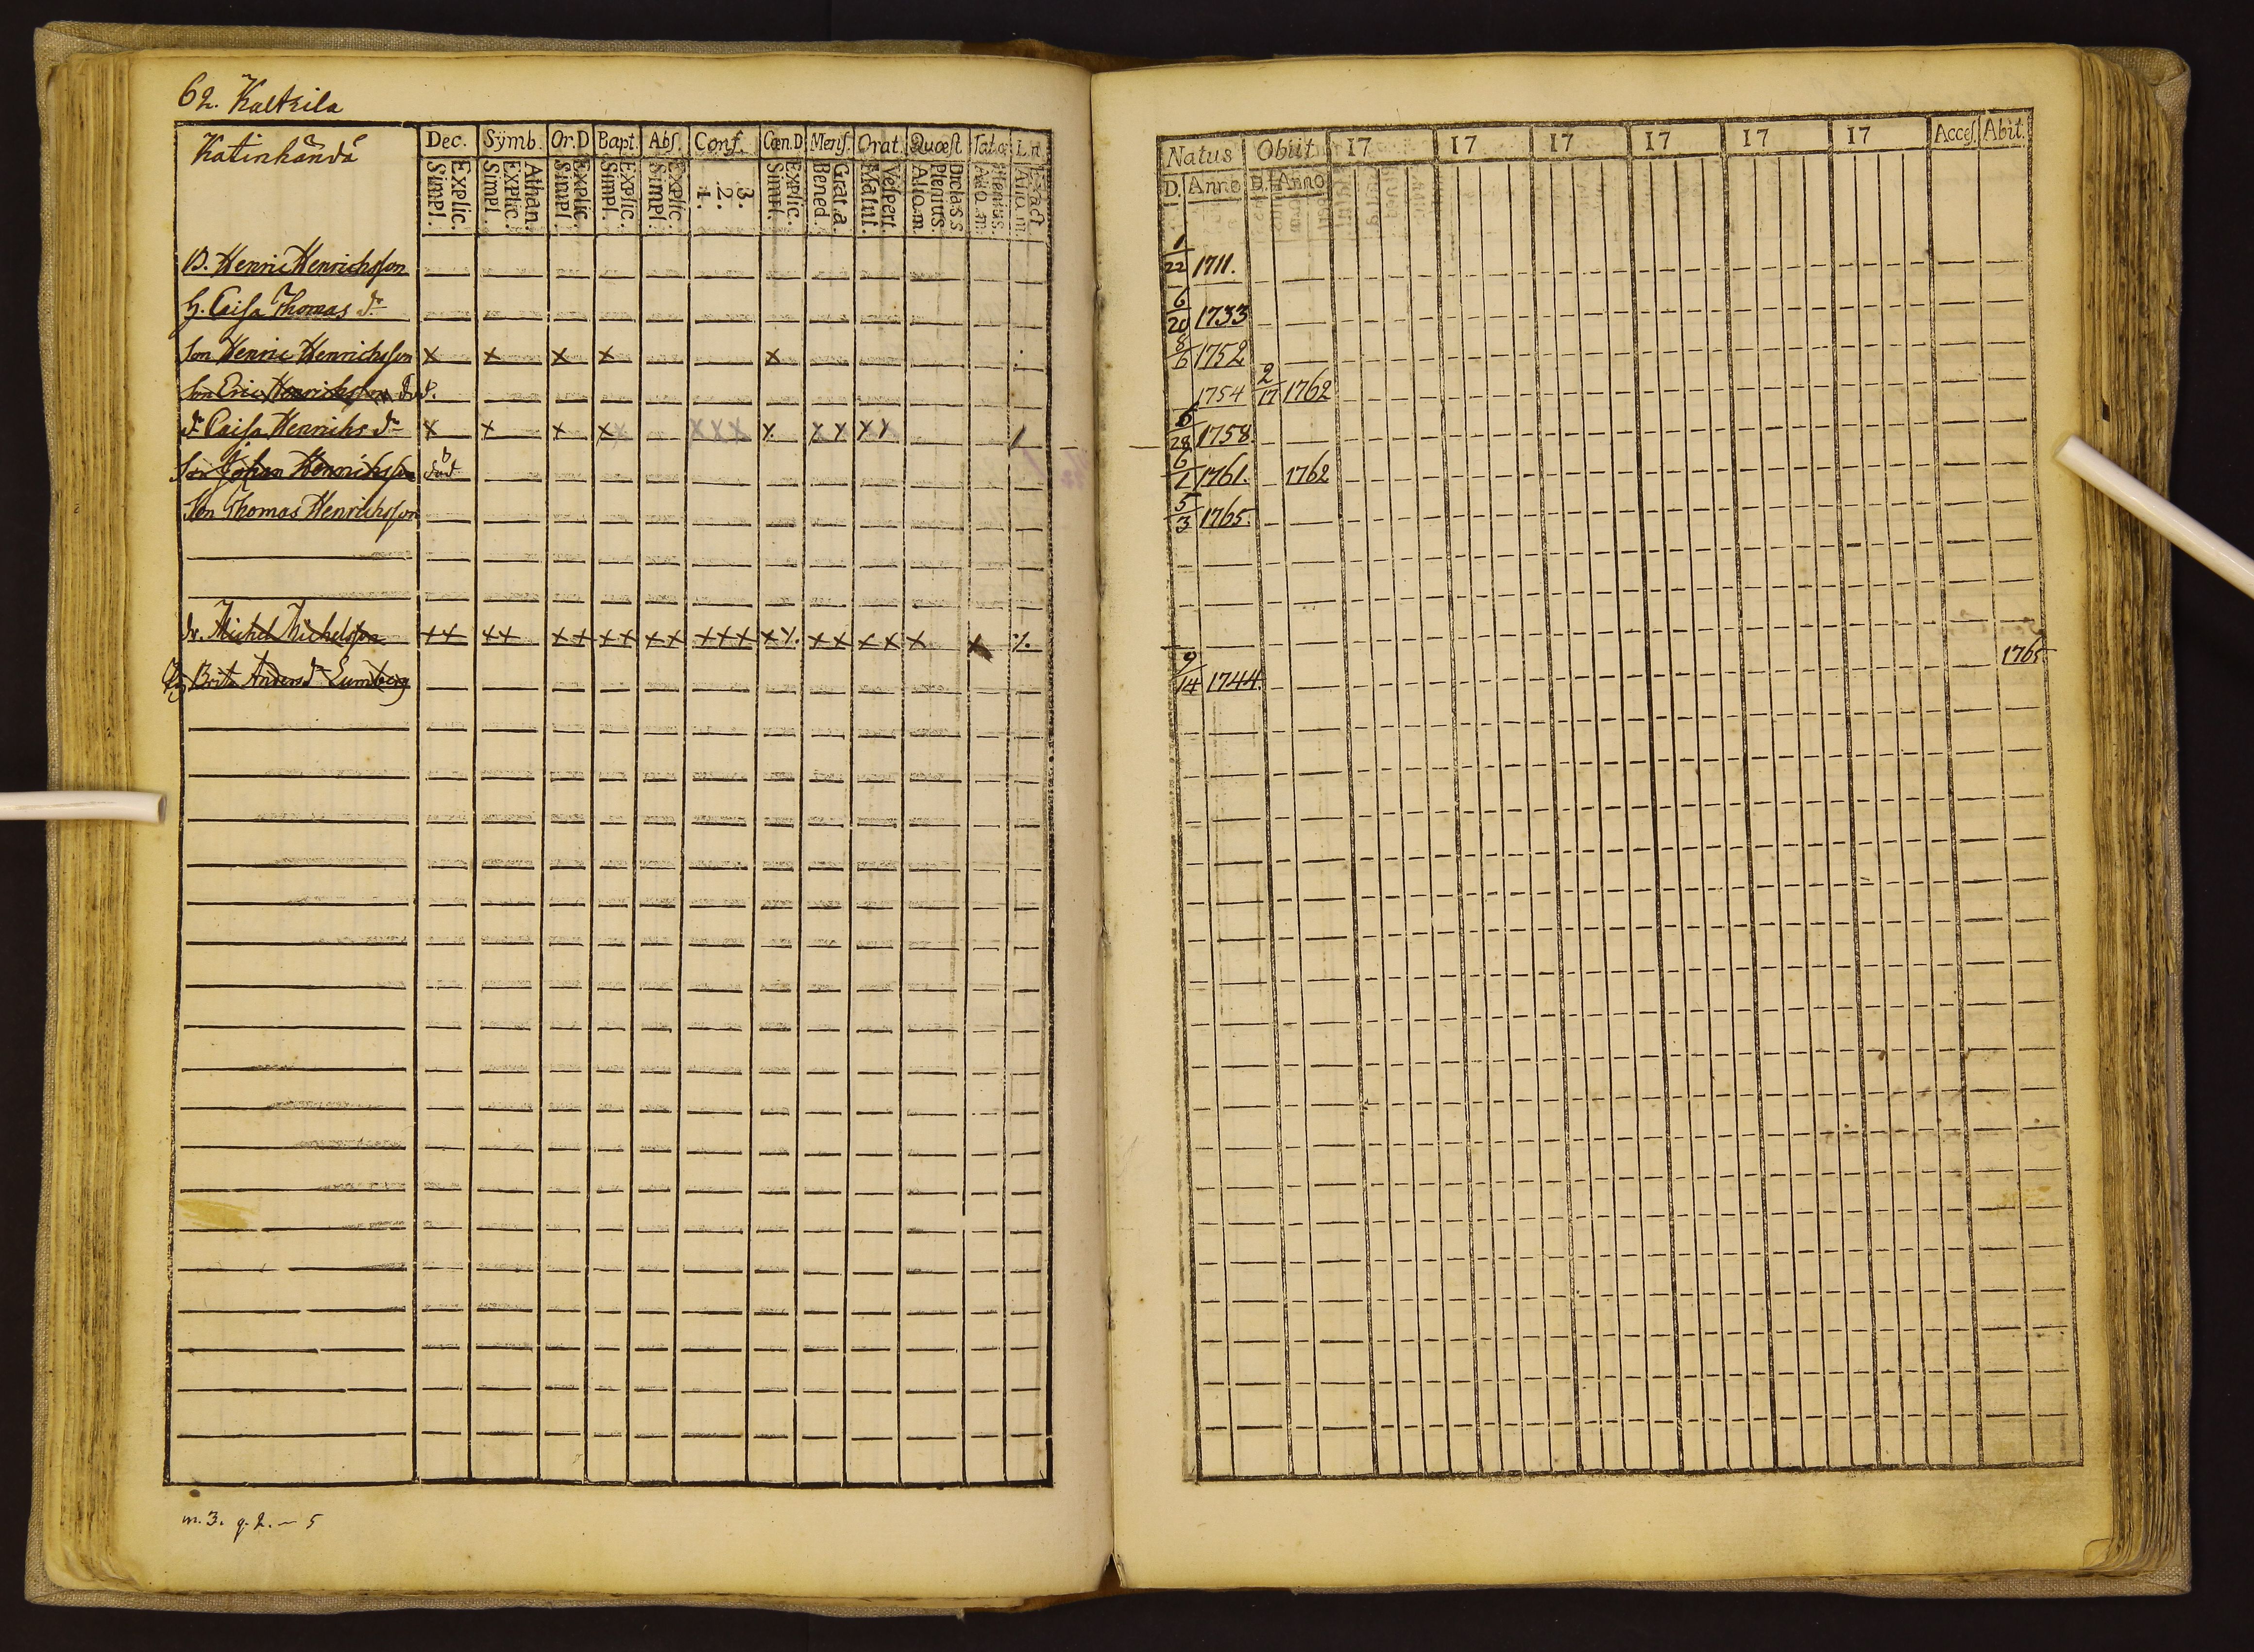 62. Kaltsila
Katinhändä
Dec. Symb. Or.D Bapt. Abſ. Conf. Cœn.D Menſ. Orat. Quæſt Tata L.n
Explic. Simpl.
Athan. Explic. Simpl.
Explic. Simpl.
Explic. Simpl.
Explic. Simpl.
3. 2. 1.
Explic. Simpl.
Grat.a. Bened.
Veſpert. Matut.
Dicta S.S Plenius. Aliq.m.
Plenius. Aliq.m.
Exact Aliq.m
Natus Obiit 17 17 17 17 17 17 Acceſ. Abit.
D. Anno D. Anno
B. Henric Henrichsson 1/22 1711.
H. Caisa Thomas dr 6/20 1733
Son Henric Henrichsson x x x x x 8/6 1752
Son Eric Henrichsson död. 1754 2/17 1762
dr Caisa Henrichs dr x x x x x x x x x x x x x 6/28 1758
Son Johan Henrichsson död 6/1 1761. 1762
Son Thomas Henrichsson 5/3 1765.
dr. Michel Michelsson xx xx xx xx xx xxx xx. xx xx x x
Hu Brita Anders dr Lumberg 9/14 1744. 1765
m. 3. q. 2. — 5